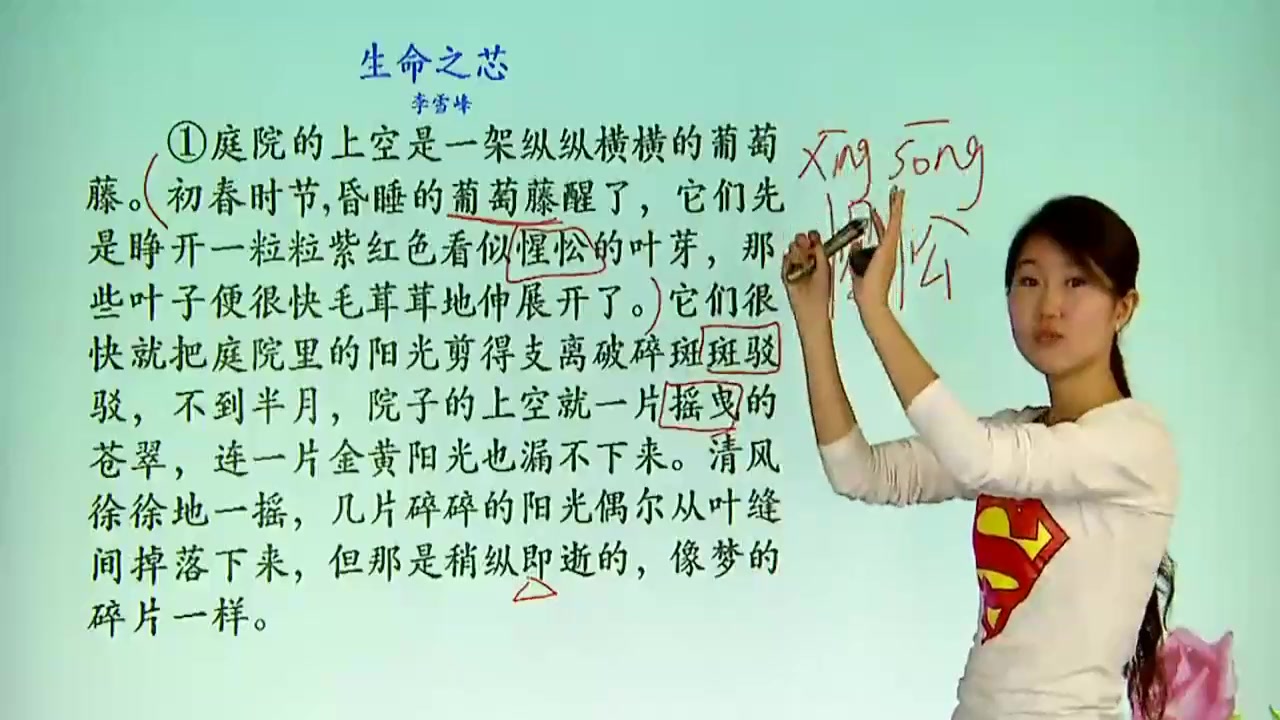 生命之芯
李雪峰
①庭院的上空是一架纵纵横横的葡萄
藤。初春时节,昏睡的葡萄藤醒了，它们先
是睁开一粒粒紫红色看似惺忪的叶芽，那
些叶子便很快毛茸茸地伸展开了。它们很
快就把庭院里的阳光剪得支离破碎斑斑驳
驳，不到半月，院子的上空就一片摇曳的
苍翠，连一片金黄阳光也漏不下来。清风
徐徐地一摇，几片碎碎的阳光偶尔从叶缝
间掉落下来，但那是稍纵即逝的，像梦的
碎片一样。
xīng sōng
忪